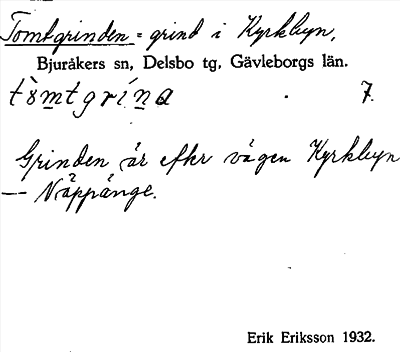 Tomtgrinden = grind i Kyrkbyn,
Bjuråkers sn, Delsbo tg, Gävleborgs län.
tòmtgrína . 7.
Grinden är efter vägen Kyrkbyn
— Näppänge.
Erik Eriksson 1932.